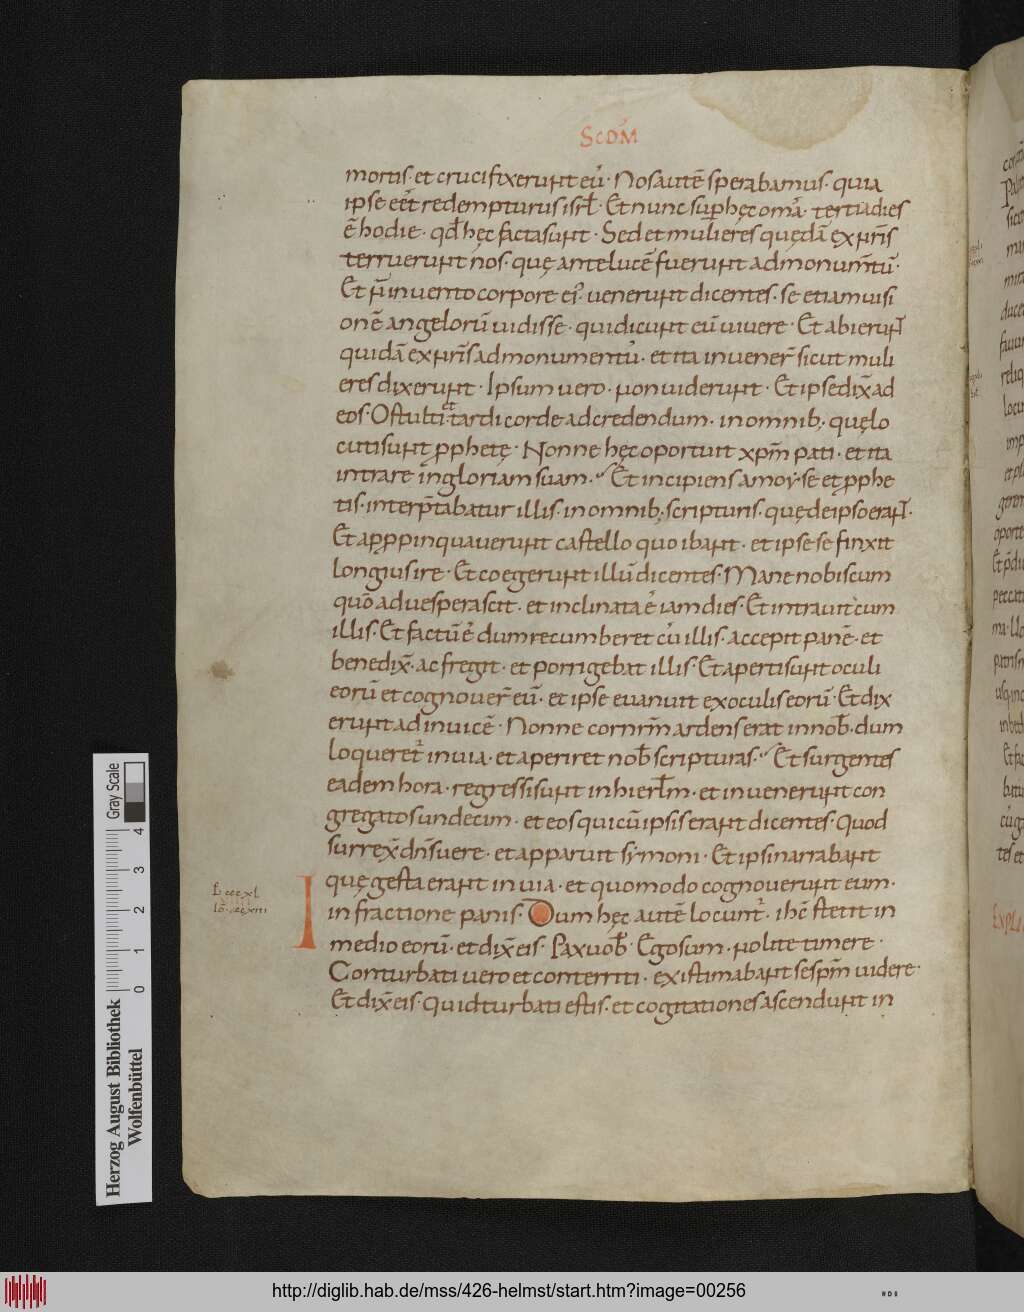 SCDM
mortis· et crucifixerunt eū· Nos autē sperabamus· quia
ipse eēt redempturus isrl̄· Et nunc sup hęc oma· tertia dies
ē hodie· qđ hęc facta sunt· Sed et mulieres quędā ex nr̄is
terruerunt nos· quę ante lucē fuerunt ad monum̄tū·
Et ń inuento corpore ei᾽ uenerunt dicentes· se etiam uisi
onē angelorū uidisse· qui dicunt eū uiuere· Et abierunt̄
quidā ex nr̄is ad monumentū· et ita inuener̄ sicut muli
eres dixerunt· Ipsum uero· non uiderunt· Et ipse dix̄ ad
eos· O stulti· et tardi corde ad credendum· in omnib;· quę lo
cuti sunt ꝓphetę· Nonne hęc oportuit xpm̄ pati· et ita
intrare in gloriam suam· Et incipiens a moẏse et ꝓphe
tis· interp̄tabatur illis· in omnib; scripturis· quę de ipso erant̄·
Et apꝓpinquauerunt castello quo ibant· et ipse se finxit
longius ire· Et coegerunt illū dicentes· Mane nobiscum
quō aduesperascit· et inclinata ē iam dies· Et intrauit cum
illis· Et factū ē dum recumberet cū illis· accepit panē· et
benedix̄· ac fregit· et porrigebat illis· Et aperti sunt oculi
eorū et cognouer̄ eū· et ipse euanuit ex oculis eorū· Et dix
erunt ad inuicē· Nonne cor nr̄m ardens erat in nob̄· dum
loqueret᷑ in uia· et aperiret nob̄ scripturas· Et surgentes
eadem hora· regressi sunt in hierl̄m· et inuenerunt con
gregatos undecim· et eos qui cū ipsis erant dicentes· Quod
surrex̄ dn̄s uere· et apparuit sẏmoni· Et ipsi narrabant
quę gesta erant in uia· et quomodo cognouerunt eum·
in fractione panis· Dum hęc autē locunt᷑· ihc̄ stetit in
medio eorū· et dix̄ eis· Pax uob̄· Ego sum· nolite timere·
Conturbati uero et conterriti· existimabant se spm̄ uidere·
Et dix̄ eis· Quid turbati estis· et cogitationes ascendunt in
Gray Scale
0 1 2 3 4
Herzog August Bibliothek
Wolfenbüttel
http://diglib.hab.de/mss/426-helmst/start.htm?image=00256